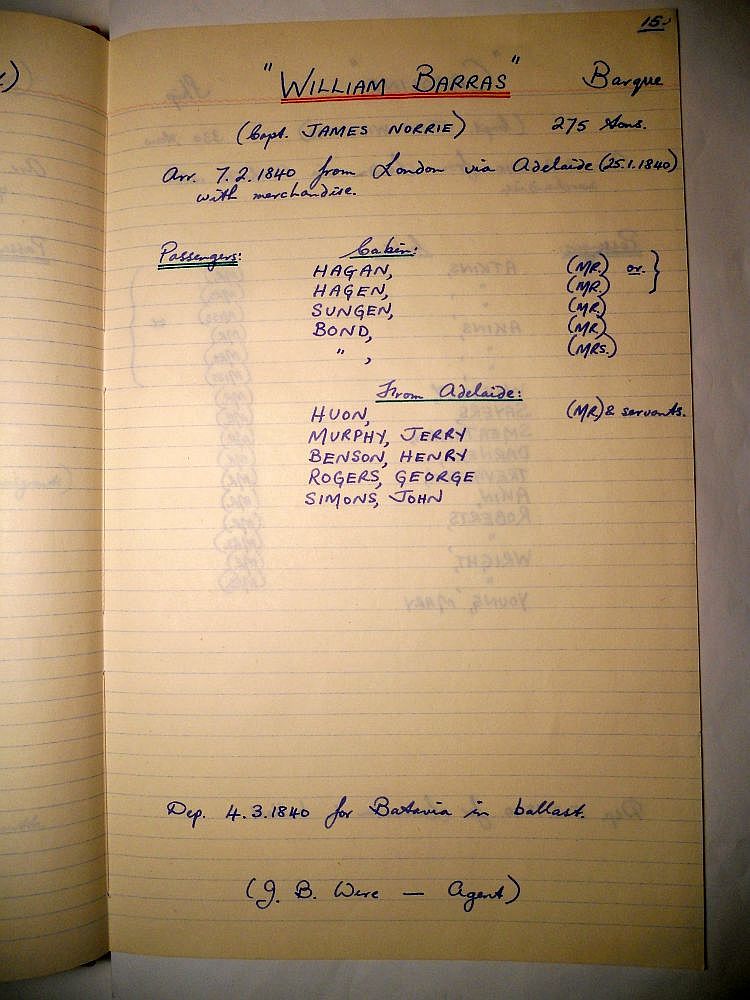 15.
"WILLIAM BARRAS" Barque
(Capt. JAMES NORRIE) 275 tons.
Arr. 7.2.1840 from London via Adelaide (25.1.1840)
with merchandise.
Passengers: Cabin:
HAGAN, (MR.) or }
HAGEN, (MR.)
SUNGEN, (MR.)
BOND, (MR.)
" , (MRS.)
From Adelaide:
HUON, (MR) & servants.
MURPHY, JERRY
BENSON, HENRY
ROGERS, GEORGE
SIMONS, JOHN
Dep. 4.3.1840 for Batavia in ballast.
(J. B. Were — Agent)